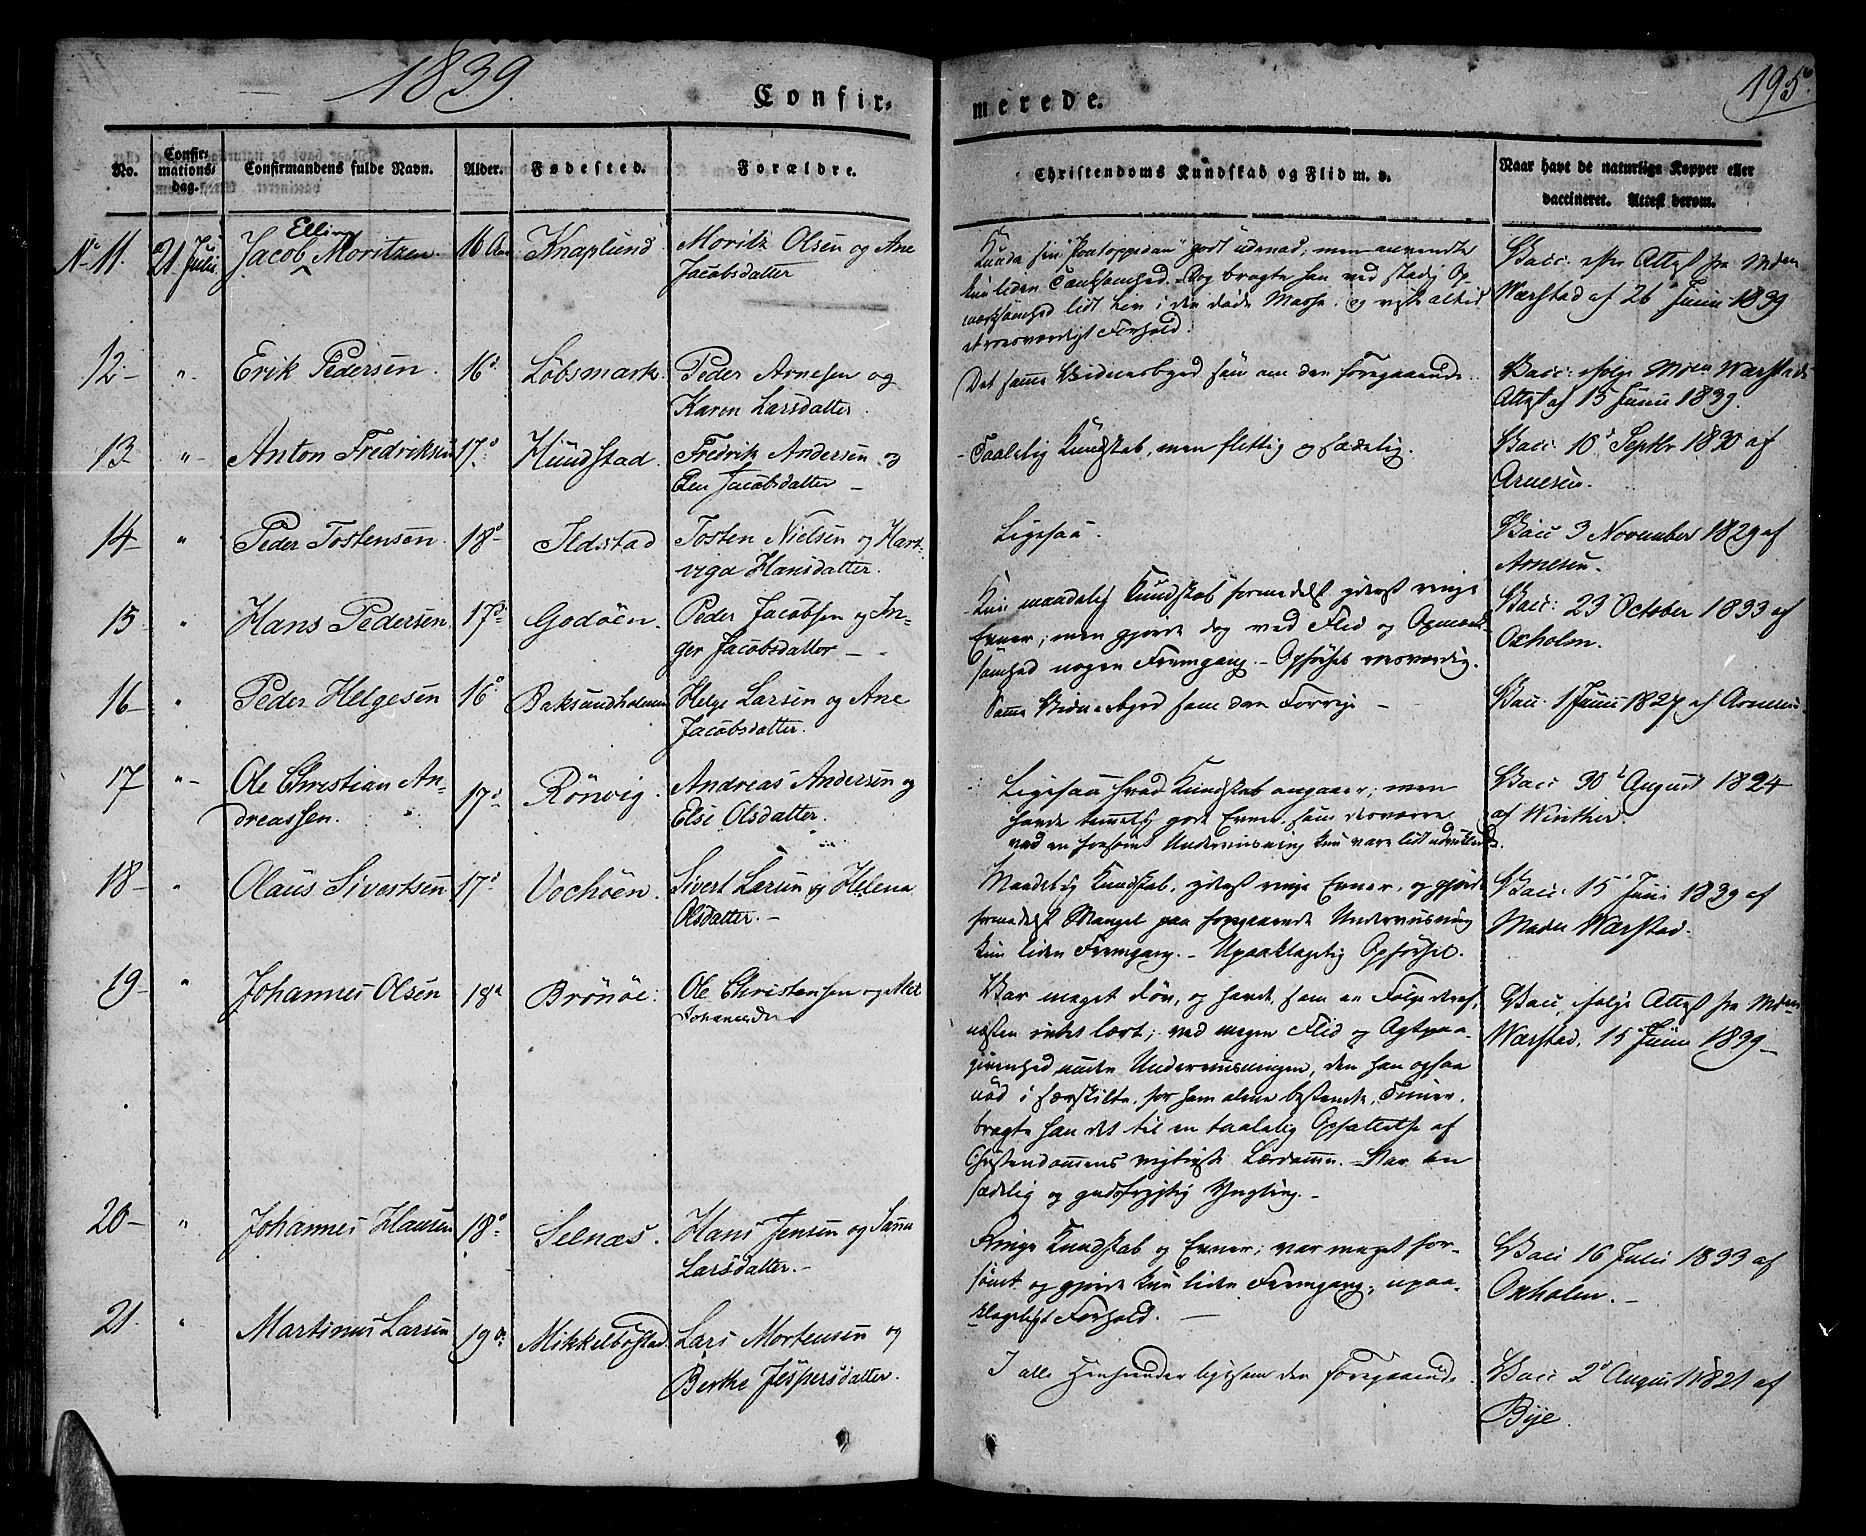 1839.
195.
Confir- merede.
No.
Confir-
mations-
dag.
Confirmandens fulde Navn.
Alder.
Fødested.
Forældre.
Christendoms Kundskab og Flid m. v.
Naar have de naturlige Kopper eller
vaccineret. Attest derom.
No 11. 21 Juli Jacob Elling Moritzen 16 Aar Knaplund Moritz Olsen og Ane
Jacobsdatter
Kunde sin "Pontoppidan" godt udenad; men anvendte
kun liden Tænksomhed. Dog bragte han ved stadig Op-
mærksomhed lidt Liv i den døde Masse, og viste altid
et roesværdigt Forhold.
Vacc: efter Attest fra Mdm
Warstad af 26 Junii 1839
12 - " - Erik Pedersen. 16 Løbsmark. Peder Arnesen og
Karen Larsdatter.
Det samme Vidnesbyrd som om den foregaaende.
Vacc: ifølge Mdm Warstads
Attest af 15 Junii 1839.
13 - " - Anton Fredriksen 17 Hundstad. Fredrik Andersen og
Elen Jacobsdatter -
- Taalelig Kundskab, men flittig og sædelig.
Vacc 10 Septbr 1830 af
Arnesen.
14 - " Peder Tostensen. 18 Ildstad Tosten Nielsen og Hart-
viga Hansdatter.
Ligesaa.
Vacc 3 November 1829 af
Arnesen.
15 " Hans Pedersen. 17 Godøen. Peder Jacobsen og In-
ger Jacobsdatter -
Kun maadelig Kundskab formedelst yderst ringe
Evner; men gjorde dog ved Flid og Opmærk-
somhed nogen Fremgang. - Opførsel roesværdig.
Vacc: 23 October 1833 af
Oxholm.
16 - " Peder Helgesen 16 Baksundholmen Helge Larsen og Ane
Jacobsdatter.
Samme Vidnesbyrd som den Forrige -
Vacc. 1 Junii 1827 af Arnesen.
17 " - Ole Christian An-
dreassen. 17 Rönvig. Andreas Andersen og
Else Olsdatter.
Ligesaa hvad Kundskab angaaer; men
havde temmelig gode Evner, som desværre
ved en forsømt Undervisning kun vare lidt udviklede.
Vacc 30 August 1824
af Winther.
18 - " Olaus Sivertsen 17 Vochöen. Sivert Larsen og Helena
Olsdatter. -
Maadelig Kundskab, yderst ringe Evner, og gjorde
formedelst Mangel paa foregaaende Undervisning
kun liden Fremgang. - Upaaklagelig Opførsel.
Vacc. 15 Junii 1839 af
Madm Warstad.
19 - " Johannes Olsen 18 Brönöe. Ole Christensen og
Johannesd
Var meget døv, og havde, som en Følge deraf,
næsten intet lært; ved megen Flid og Agtpaa-
givenhed under Undervisningen, den han ogsaa
nød i særskilte, for ham alene bestemte, Timer,
bragte han det til en taalelig Opfattelse af
Christendommens vigtigste Lærdomme. - Var en
sædelig og gudfrygtig Yngling. -
Vacc, ifølge Attest fra Mdm
Warstad, 15 Junii 1839 -
20 - " Johannes Hansen 18 Selnæs. Hans Jensen og
Larsdatter. -
Ringe Kundskab og Evner; var meget for-
sømt og gjorde kun liden Fremgang; upaa-
klageligt Forhold. -
Vacc 16 Julii 1833 af
Oxholm. -
21 " Martinus Larsen 19 Mikkelbostad. Lars Mortensen og
Berthe Jespersdatter.
I alle Henseender ligesom den foregaaende.
Vacc 2 August 1821 af
Bye.